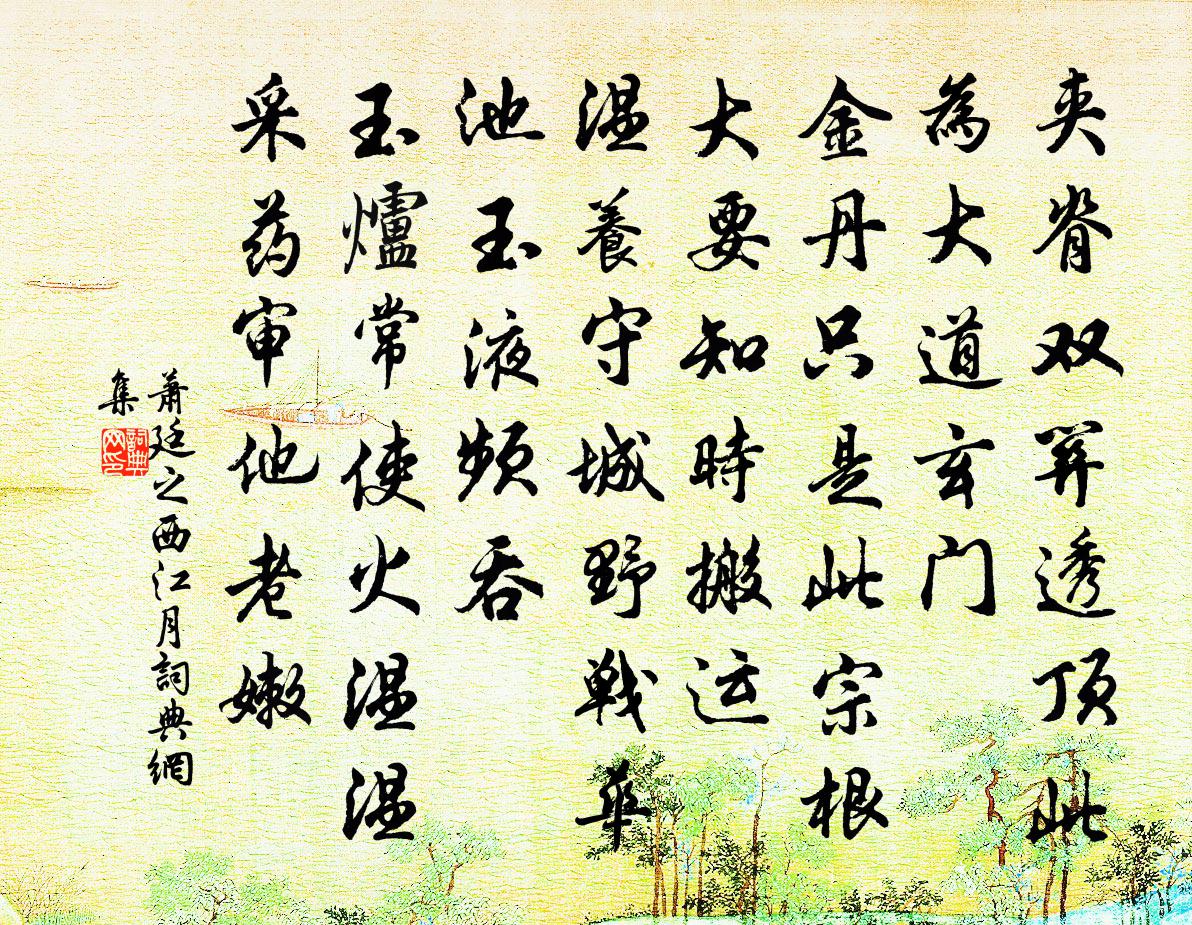 夹脊双关透顶此
為大道玄门
金丹只是此宗根
大要知時搬运
温養守城野戰華
池玉液频吞
玉爐常使火温温
采药审他老嫩
萧廷之西江月詞典網
集
詞典
网印